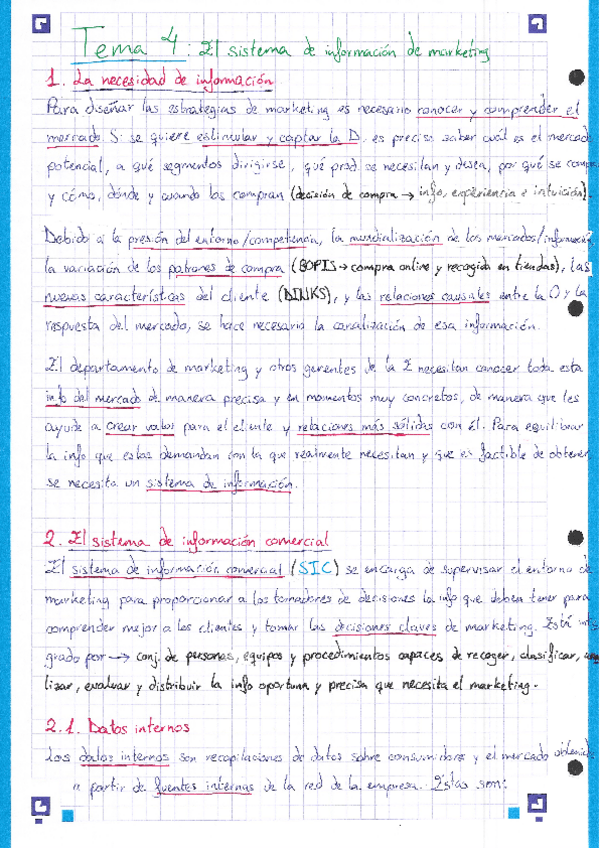 Tema 4: El sistema de información de marketing
1. La necesidad de información
Para diseñar las estrategias de marketing es necesario conocer y comprender el
mercado. Si se quiere estimular y captar la D. es preciso saber cuál es el mercado
potencial, a qué segmentos dirigirse, qué prod. se necesitan y desea, por qué se compra
y cómo, dónde y cuando los compran (decisión de compra → info, experiencia e intuición).
Debido a la presión del entorno/competencia, la mundialización de los mercados/información
la variación de los patrones de compra (BOPIS → compra online y recogida en tiendas), las
nuevas características del cliente (DINKS), y las relaciones causales entre la O y la
respuesta del mercado, se hace necesario la canalización de esa información.
El departamento de marketing y otros gerentes de la E necesitan conocer toda esta
info del mercado de manera precisa y en momentos muy concretos, de manera que les
ayude a crear valor para el cliente y relaciones más sólidas con él. Para equilibrar
la info que estas demandan con la que realmente necesitan y que es factible de obtener
se necesita un sistema de información.
2. El sistema de información comercial
El sistema de información comercial (SIC) se encarga de supervisar el entorno de
marketing para proporcionar a los tomadores de decisiones la info que deben tener para
comprender mejor a los clientes y tomar las decisiones claves de marketing. Está inte
grado por → conj. de personas, equipos y procedimientos capaces de recoger, clasificar, ana
lizar, evaluar y distribuir la info oportuna y precisa que necesita el marketing.
2.1. Datos internos
Los datos internos son recopilaciones de datos sobre consumidores y el mercado obtenida
a partir de fuentes internas de la red de la empresa. Estas son: